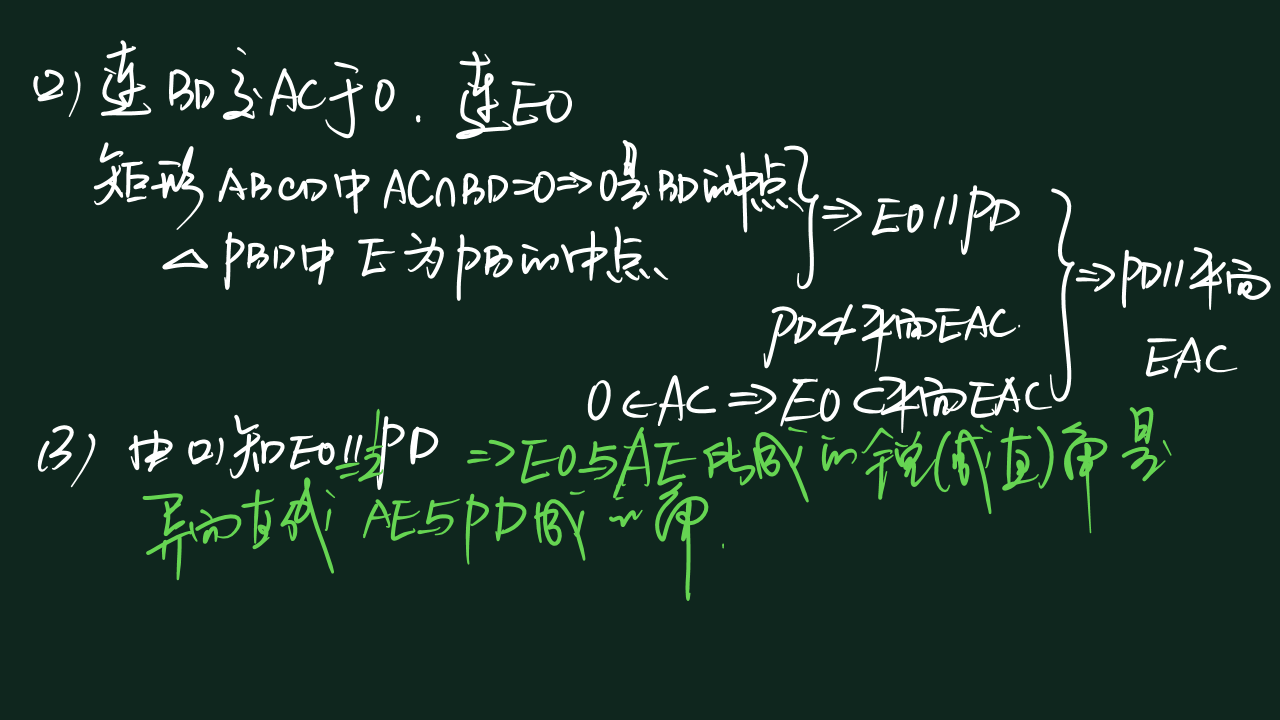 (2) 连BD交AC于O. 连EO
矩形ABCD中 AC∩BD=O⇒O是BD的中点
△PBD中 E为PB的中点
⇒EO//PD
PD⊄平面EAC
O∈AC⇒EO⊂平面EAC
⇒PD//平面
EAC
(3) 由(2)知EO//PD ⇒EO与AE所成的锐(或直)角是
异面直线AE与PD成的角.